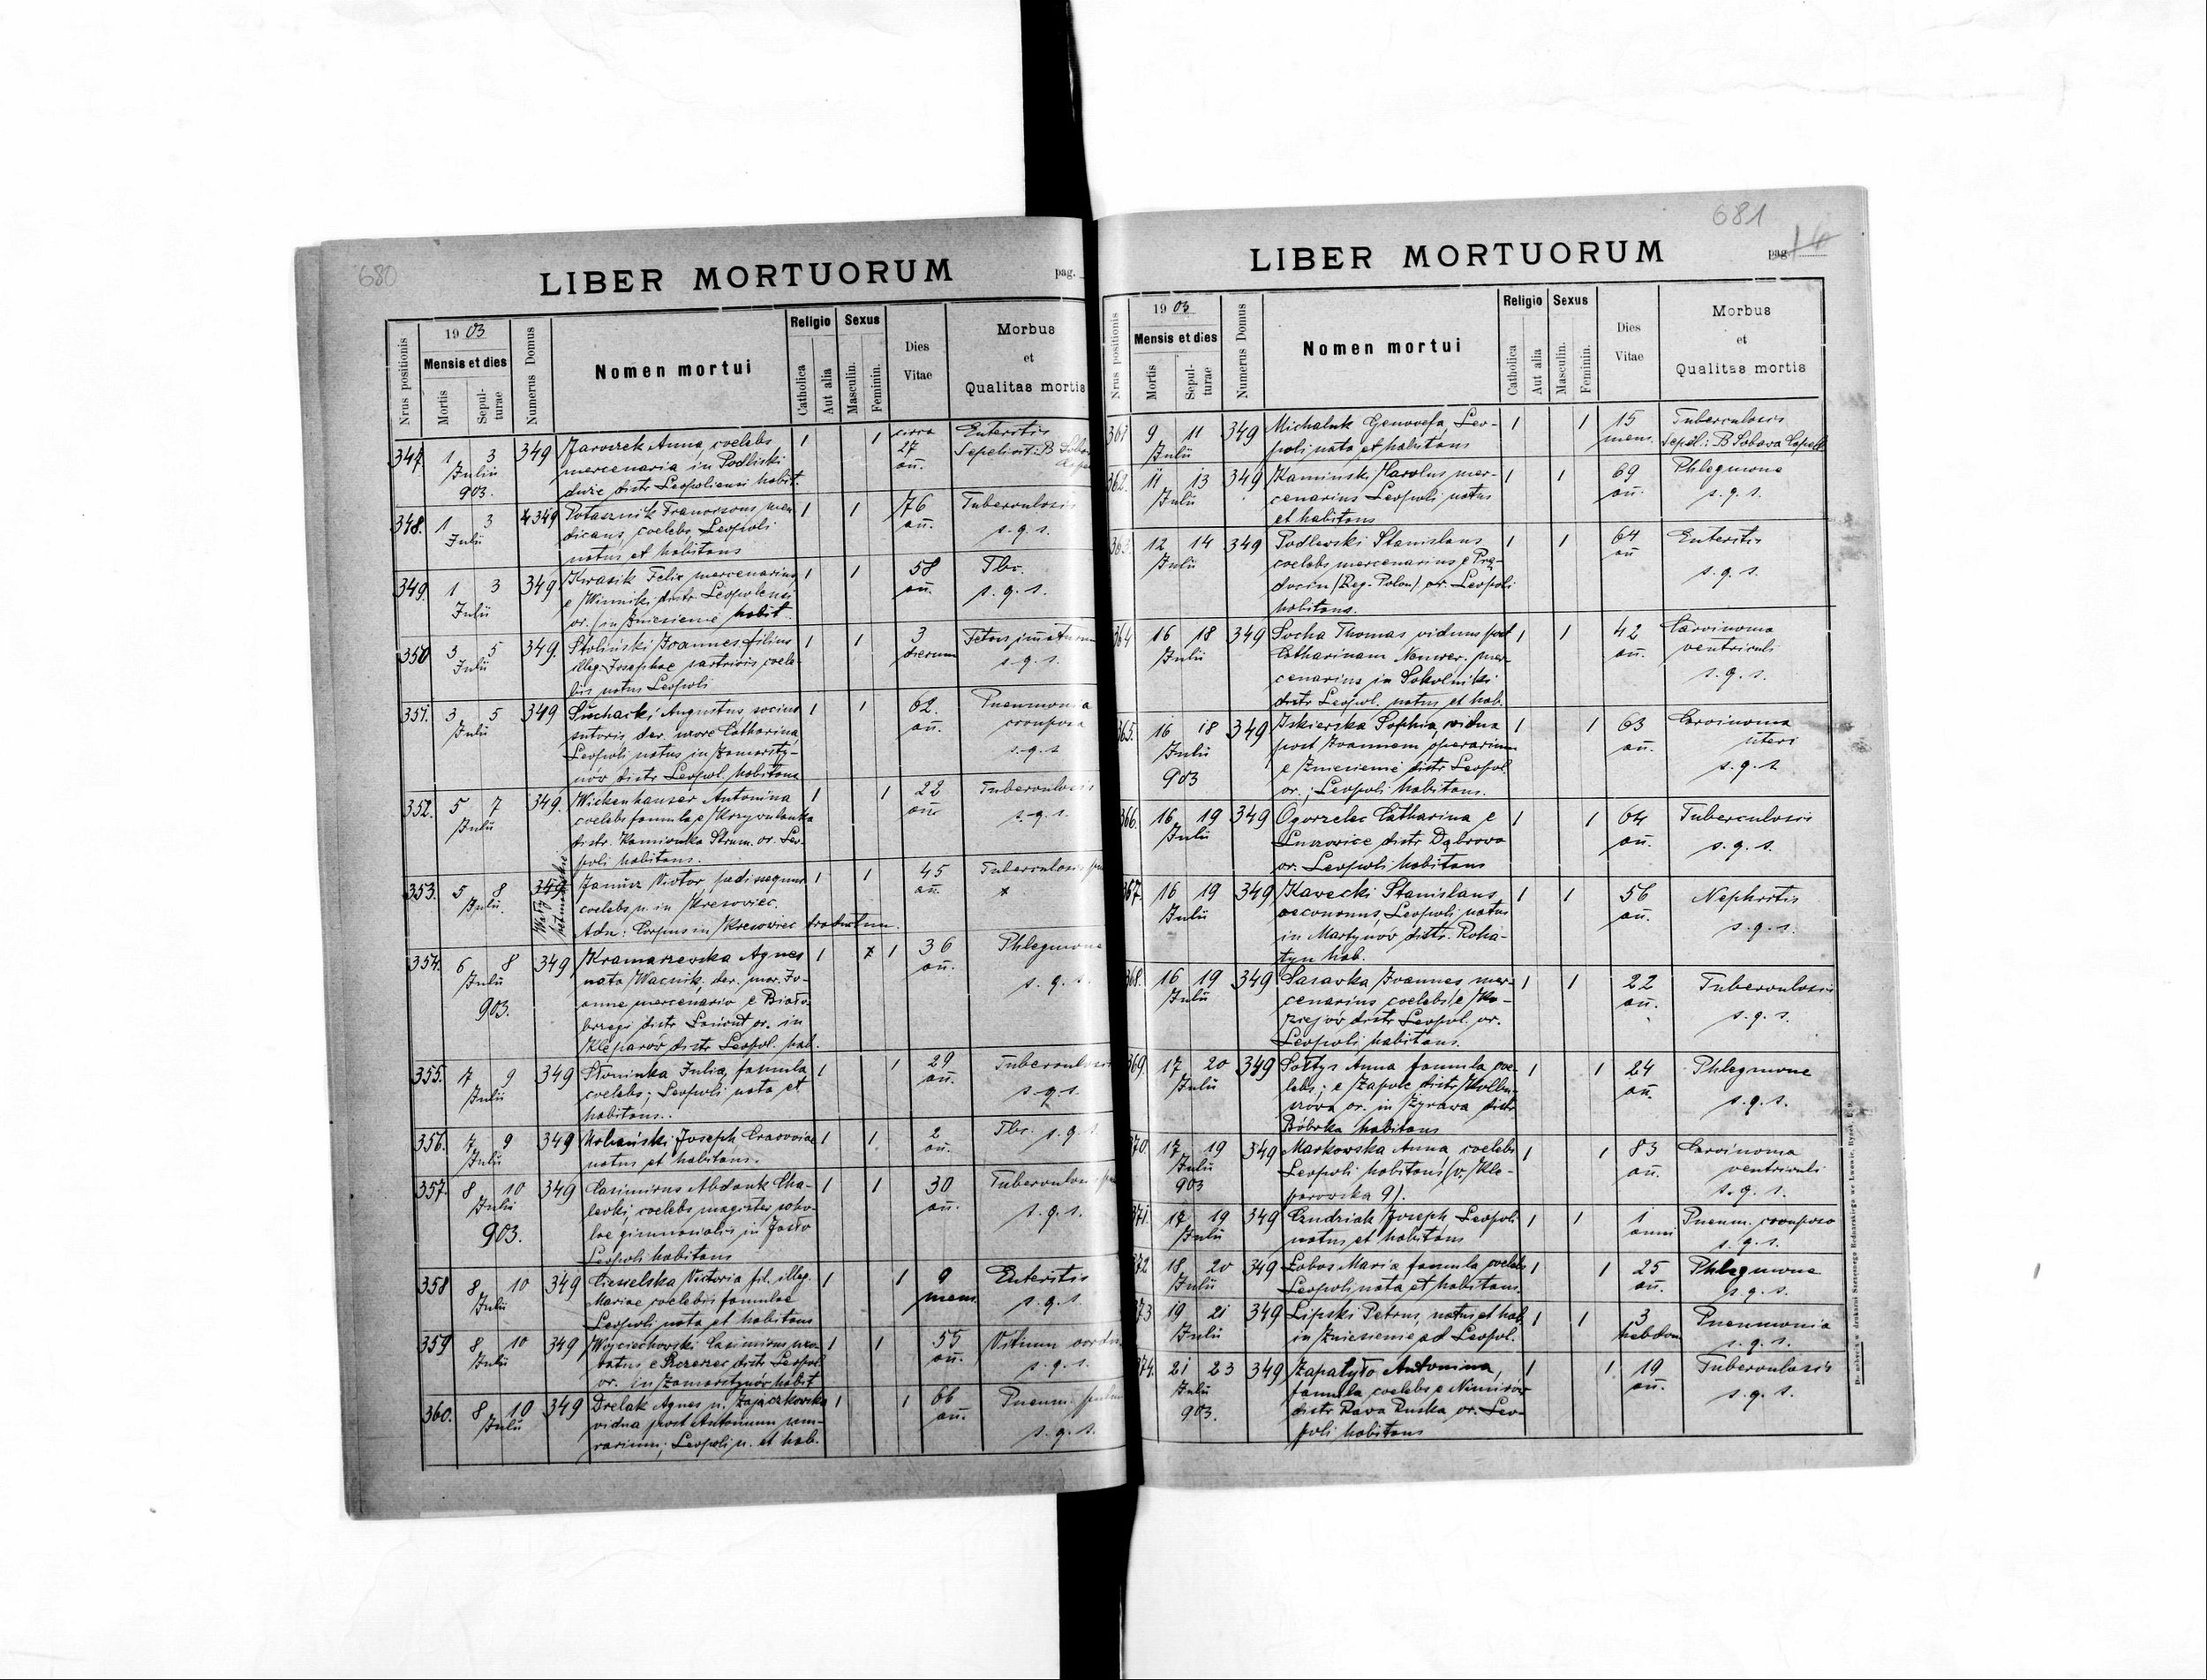 680
LIBER MORTUORUM
pag.
Nrus positionis
1903
Mensis et dies
Mortis
Sepulturae
Numerus Domus
Nomen mortui
Religio
Catholica
Aut alia
Sexus
Masculin.
Feminin.
Dies
Vitae
Morbus
et
Qualitas mortis
347. 1 3 Julii 903. 349 Jaroszek Anna, coelebs 1 1 circa 27 an. Enteritis
mercenaria in Podliski Sepelivit: B
duże distr Leopoliensi habit.
348. 1 3 Julii 349 Potasznik Franciscus, men- 1 1 76 an. Tuberculosis
dicans, coelebs, Leopoli s. q. s.
natus et habitans
349. 1 3 Julii 349 Kwasik Felix mercenarius 1 1 58 an. Tbc.
e Winniki distr Leopoliensi s. q. s.
or. in Zniesienie habit.
350 3 5 Julii 349. Stoliński Joannes filius 1 1 3 dierum Fetus immaturus
illeg. Josephae sartricis coele- s. q. s.
bis natus Leopoli
351. 3 5 Julii 349 Suchacki Augustus socius 1 1 62. an. Pneumonia
sutoris der. uxore Catharina, crouposa
Leopoli natus in Zamarsty- s. q. s
nów distr Leopol. habitans
352. 5 7 Julii 349. Wickenhauser Antonina 1 1 22 an. Tuberculosis
coelebs famula e Krzywulanka s. q. s.
distr. Kamionka Strum. or. Leo-
poli habitans.
353. 5 8 Julii. 349 Wały hetmańskie Janusz Victor, pedissequus 1 1 45 an. Tuberculosis
coelebs n. in Kresowiec. x
Adn: Corpus in Kresowiec
354. 6 8 Julii 903. 349 Kramarzewska Agnes 1 x 1 36 an. Phlegmone
nata Wacnik, der. mar. Jo- s. q. s.
anne mercenario e Biało-
brzegi distr Łańcut or. in
Kleparów distr Leopol. hab.
355. 7 9 Julii 349 Słoninka Julia, famula 1 1 29 an. Tuberculosis
coelebs; Leopoli nata et s. q. s.
habitans.
356. 7 9 Julii 349 Urbański Joseph, Cracoviae 1 1 2 an. Tbc. s. q. s
natus et habitans.
357. 8 10 Julii 903. 349 Casimirus Abdank Cha- 1 1 30 an. Tuberculosis
lecki, coelebs magister scho- s. q. s.
lae gimnasialis in Jasło
Leopoli habitans
358 8 10 Julii 349 Ciesielska Victoria fil. illeg. 1 1 9 mens. Enteritis
Mariae coelebis famulae s. q. s.
Leopoli nata et habitans
359 8 10 Julii 349 Wojciechowski Casimirus 1 1 55 an. Vitium cordis
e distr Leopol s. q. s.
or. in Zamarstynów habit
360. 8 10 Julii 349 Drelak Agnes n. Zajączkowska 1 1 66 an. Pneum.
vidua post Antonium s. q. s.
Leopoli n. et hab.
681
LIBER MORTUORUM
pag. 16
Nrus positionis
1903
Mensis et dies
Mortis
Sepulturae
Numerus Domus
Nomen mortui
Religio
Catholica
Aut alia
Sexus
Masculin.
Feminin.
Dies
Vitae
Morbus
et
Qualitas mortis
361 9 11 Julii 349 Michaluk Genovefa, Leo- 1 1 15 mens. Tuberculosis
poli nata et habitans Sepel: B Sobava
362. 11 13 Julii 349 Kaminski Karolus mer- 1 1 69 an. Phlegmone
cenarius Leopoli natus s. q. s.
et habitans
363. 12 14 Julii 349 Podlewski Stanislaus 1 1 64 an Enteritis
coelebs mercenarius e Prę- s. q. s.
docin (Reg. Polon) or. Leopoli
habitans.
364 16 18 Julii 349 Socha Thomas viduus post 1 1 42 an. Carcinoma
Catharinam mer- ventriculi
cenarius in Sokolniki s. q. s.
distr Leopol. natus et hab.
365. 16 18 Julii 903 349 Iskierska Sophia, vidua 1 1 63 an. Carcinoma
post Joannem operarium uteri
e Zniesienie distr Leopol s. q. s
or.; Leopoli habitans.
366. 16 19 Julii 349 Ogorzelec Catharina e 1 1 64 an. Tuberculosis
Luszowice distr Dąbrowa s. q. s.
or. Leopoli habitans
367. 16 19 Julii 349 Kawecki Stanislaus 1 1 56 an. Nephritis
oeconomus, Leopoli natus s. q. s.
in Martynów distr. Roha-
tyn hab.
368. 16 19 Julii 349 Sasavka Joannes mer- 1 1 22 an. Tuberculosis
cenarius coelebs e Ko- s. q. s.
ziejów distr Leopol. or.
Leopoli habitans.
369. 17 20 Julii 349 Sołtys Anna famula coe- 1 1 24 an. Phlegmone
lebs; e Zapole distr Kolbu- s. q. s.
szowa or. in Żyrawa distr
Bóbrka habitans
370. 17 19 Julii 903 349 Markowska Anna, coelebs 1 1 83 an. Carcinoma
Leopoli habitans (v. Kle- ventriculi
parowska 9). s. q. s.
371. 17 19 Julii 349 Czudziak Joseph Leopoli 1 1 1 anni Pneum. crouposa
natus et habitans s. q. s.
372 18 20 Julii 349 Łobos Maria famula coelebs 1 1 25 an. Phlegmone
Leopoli nata et habitans. s. q. s.
373 19 21 Julii 349 Lipski Petrus, natus et hab. 1 1 3 hebdom Pneumonia
in Zniesienie ad Leopol. s. q. s.
374. 21 23 Julii 903. 349 Zapatyło Antonina, 1 1 19 an. Tuberculosis
famula coelebs e Niemirów s. q. s.
distr Rava Ruska or. Leo-
poli habitans